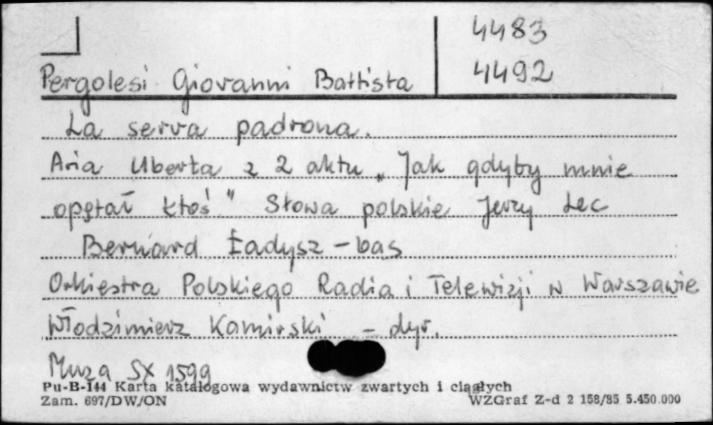 4483
4492
Pergolesi Giovanni Battista
La serva padrona.
Aria Uberta z 2 aktu „Jak gdyby mnie
opętał ktoś." Słowa polskie Jerzy Lec
Bernard Ładysz - bas
Orkiestra Polskiego Radia i Telewizji w Warszawie
Włodzimierz Kamirski - dyr.
Muza SX 1599
Pu-B-144 Karta katalogowa wydawnictw zwartych i ciągłych
Zam. 697/DW/ON WZGraf Z-d 2 158/85 5.450.000